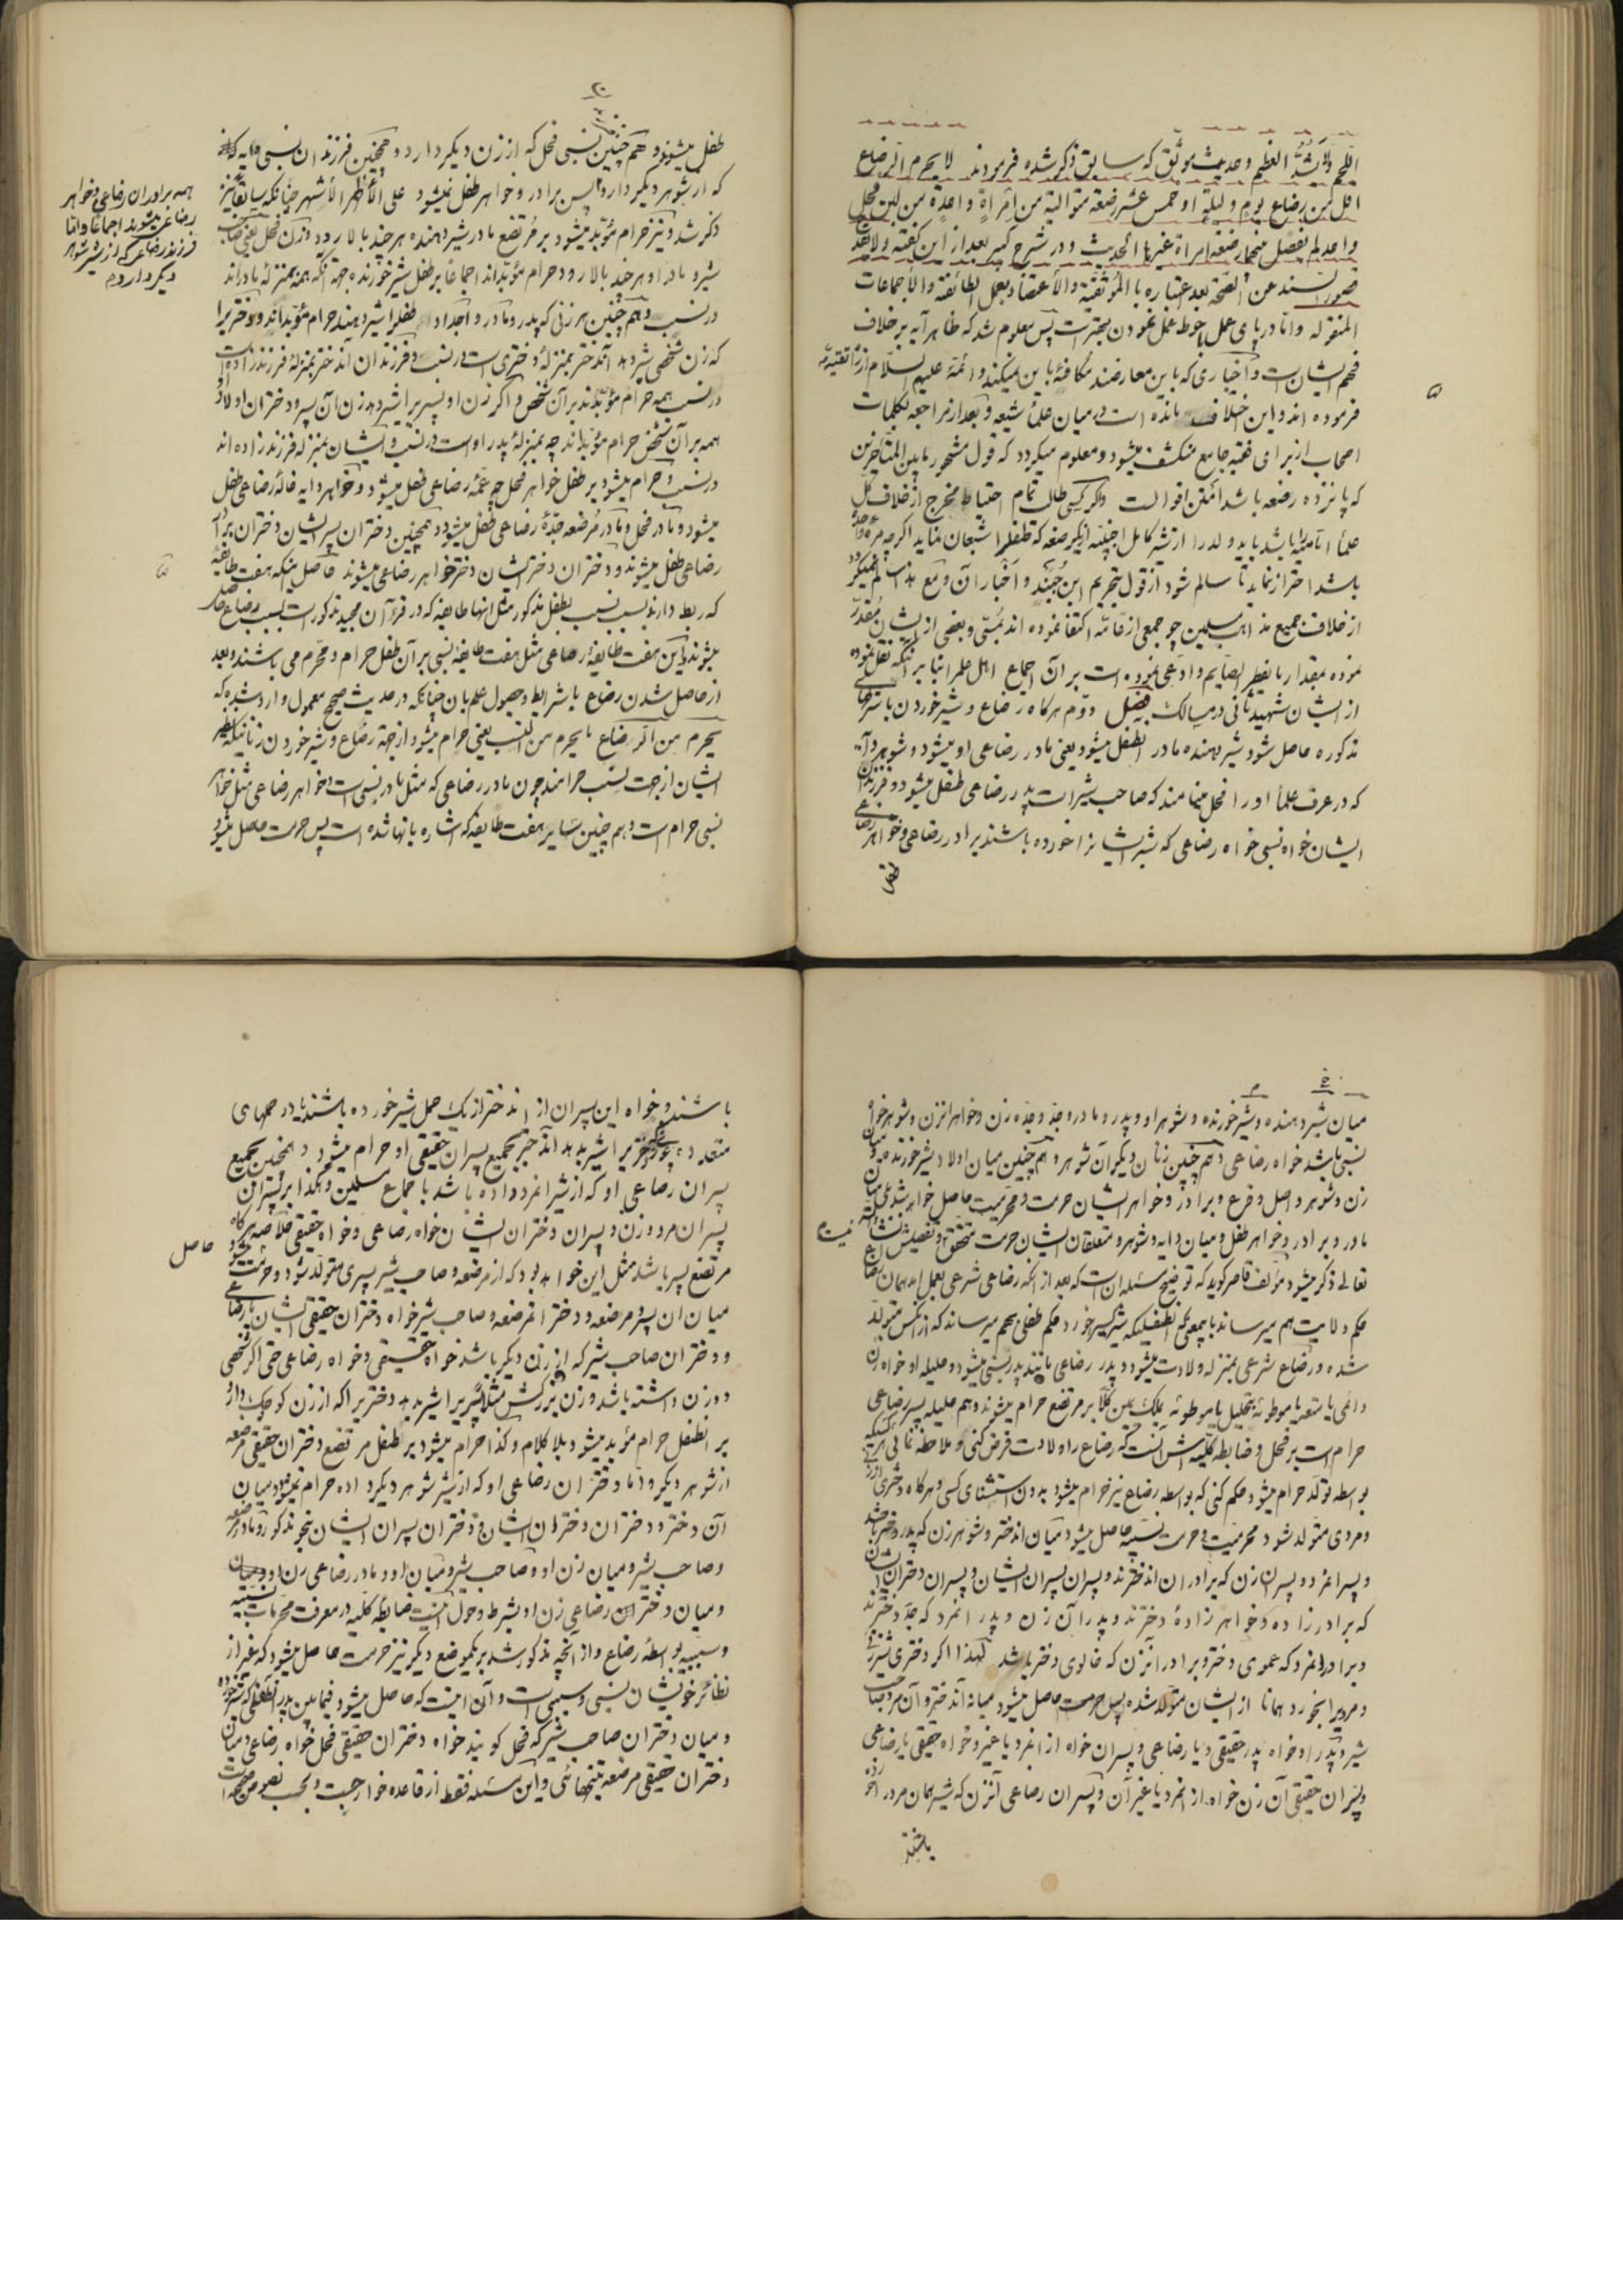 اللحم ولا یشد العظم وحدیث موثق که سابق ذکر شده فرمودند لا یحرم الرضاع
اقل من رضاع یوم ولیلة او خمس عشر رضعة متوالیة من امرأة واحدة من لبن فحل
واحد لم یفصل بینها رضعة امرأة غیرها الحدیث و در شرح کبیر بعد از این گفته ولا یقدح
قصور السند عن الصحة بعد اعتباره بالموثقیة والاعتضاد بعمل الطائفة والاجماعات
المنقولة واما در پای عمل باحوط عمل نمودن بهتر است پس معلوم شد که ظاهر آیه بر خلاف
فهم ایشان است و اخباری که با این معارضند مکافئه با این نمیکنند و ائمه علیهم السلام از راه تقیه
فرموده اند و این اختلاف مانده است در میان علماء شیعه و بعد از مراجعه بکلمات
اصحاب از برای فقیه جامع منکشف میشود و معلوم میگردد که قول مشهور مابین المتأخرین
که پانزده رضعه باشد امتن اقوال است و اگر کسی طالب تمام احتیاط مخرج از خلاف کل
علماء امامیه باشد باید ولد را از نشر کامل اجتناب از یکرضعه که طفل را اشبعان نماید اگر چه مرة واحدة
باشد احتراز نماید تا سالم شود از قول بتحریم ابن جنید و اخبار آن و مع هذا سالم نمیگردد
از خلاف جمیع مذاهب مسلمین چو جمعی از عامه اکتفا نموده اند بمسمی و بعضی از ایشان مقدر
نموده بمقدار ما یفطر الصایم و ادعی نموده است بر آن اجماع اهل علم را بنا بر آنکه نقل نموده
از ایشان شهید ثانی در مسالک فصل دوم هرگاه رضاع و شیر خوردن با شرایط
مذکوره حاصل شود شیر دهنده مادر آنطفل میشود یعنی مادر رضاعی او میشود و شوهر دایه
که در عرف علماء او را فحل مینامند که صاحب شیر است پدر رضاعی طفل میشود و فرزندان
ایشان خواه نسبی خواه رضاعی که شیر ایشان را خورده باشند برادر رضاعی و خواهر رضاعی
طفل
طفل میشوند و همچنین نسبی فحل که از زن دیگر دارد و همچنین فرزندان نسبی دایه
که از شوهر دیگر دارد پس برادر و خواهر طفل میشود علی الأظهر الأشهر چنانکه سابقا نیز
ذکر شد و نیز حرام مؤبد میشود بر مرتضع مادر شیر دهنده هر چند بالا رود و زن فحل یعنی صاحب
شیر و مادر او هر چند بالا رود حرام مؤبد اند اجماعا بر طفل شیر خورنده بجهة آنکه همه بمنزله مادر اند
در نسب و همچنین هر زنی که پدر و مادر و اجداد طفل را شیر دهند حرام مؤبد اند و دختر را
که زن شخصی شیر دهد آندختر بمنزلۀ دختری است در نسب و فرزندان آندختر بمنزلۀ فرزند زاده است
در نسب همه حرام مؤبدند بر آن شخص و اگر زن او پسر را شیر دهد زن آن پسر و دختران اولاد او
همه بر آن شخص حرام مؤبداند چه بمنزلۀ پدر او است در نسب و ایشان بمنزله فرزند زاده اند
در نسب و حرام میشود بر طفل خواهر فحل چه عمۀ رضاعی طفل میشود و خواهر دایه خالۀ رضاعی طفل
میشود و مادر فحل و مادر مرضعه جدۀ رضاعی طفل میشود و همچنین دختران پسر ایشان دختران برادر
رضاعی طفل میشوند و دختران دختر ایشان دختر خواهر رضاعی میشوند حاصل اینکه هفت طایفه
که ربط دارند بسبب نسب بطفل مذکور مثل انها طایفه که در قرءان مجید مذکور است بسبب رضاع حاصل
میشوند و این هفت طایفۀ رضاعی مثل هفت طایفۀ نسبی بر آن طفل حرام و محرم می باشند و بعد
از حاصل شدن رضاع با شرایط و حصول علم بان چنانکه در حدیث صحیح معمول وارد شده که
یحرم من الرضاع ما یحرم من النسب یعنی حرام میشود از جهة رضاع و شیر خوردن زنانیکه نظیر
ایشان از جهت نسب حرامند چون مادر رضاعی که مثل مادر نسبی است و خواهر رضاعی مثل خواهر
نسبی حرام است و هم چنین سایر هفت طایفه که اشاره بانها شده است پس حرمت حاصل میشود
همه برادران رضاعی و خواهر
رضاعی میشوند اجماعا و اما
فرزند رضاعی که از شیر شوهر
دیگر دارد
میان شیر دهنده و شیر خورنده و شوهر او و پدر و مادر و جد و جده زن و خواهر انزن و شوهر خواه
نسبی باشد خواه رضاعی و هم چنین زنان دیگر آن شوهر و هم چنین میان اولاد شیر خورنده و میان
زن و شوهر و اصل و فرع و برادر و خواهر ایشان حرمت و محرمیت حاصل خواهد شد بلی میان
مادر و برادر و خواهر طفل و میان دایه و شوهر و متعلقان ایشان حرمت متحقق نیست و تفصیلش انشاء الله
تعالی ذکر میشود مؤلف قاصر گوید که توضیح مسئله ان است که بعد از آنکه رضاعی شرعی بعمل امد همان رضاع
حکم ولادت بهم میرساند باین معنی که آنطفلیکه شیر کسی خورد حکم طفلی بهم میرساند که از آنکس متولد
شده و رضاع شرعی بمنزله ولادت میشود و پدر رضاعی مانند پدر نسبی میشود و حلیله او خواه زن
دائمی یا متعه یا موطوئه بتحلیل یا موطوئه بملک یمین کلا بر مرتضع حرام میشوند و هم حلیله پسر رضاعی
حرام است بر فحل و ضابطه کلیه اش آنست که رضاع را ولادت فرض کنی و ملاحظه نمائی هر کسیکه
بواسطه تولد حرام میشود حکم کنی که بواسطه رضاع نیز حرام میشود بدون استثنای کسی و هرگاه دختری از زنی
و مردی متولد شود محرمیت و حرمت نسبیه حاصل میشود میان اندختر و شوهر زن که پدر دختر باشد
و پسر انمرد و پسران زن که برادران اندخترند و پسران پسران ایشان و پسران دختران ایشان
که برادر زاده و خواهر زادۀ دخترند و پدران آن زن و پدر انمرد که جد دخترند
و برادر انمرد که عموی دختر و برادر انزن که خالوی دختر باشد لهذا اگر دختری شیر زنی
و مردیرا بخورد همانا از ایشان متولد شده پس حرمت حاصل میشود میانه آندختر و آن مرد صاحب
شیر و پدر او خواه پدر حقیقی و یا رضاعی و پسران خواه از انمرد یا غیر و خواه حقیقی یا رضاعی
و پسران حقیقی آن زن خواه از انمرد یا غیر آن و پسران رضاعی آنزن که شیر همان مرد را خورده
باشند
باشند و خواه این پسران از اندختر از یک حمل شیر خورده باشند یا در حملهای
متعدده چو هرگاه دختریرا شیر بدهد اندختر بجمیع پسران حقیقی او حرام میشود و همچنین بجمیع
پسران رضاعی او که از شیر انمرد داده باشد باجماع مسلمین و هکذا بر پسران
پسران مرد و زن و پسران دختران ایشان خواه رضاعی و خواه حقیقی خلاصه هرگاه
مرتضع پسر باشد مثل این خواهد بود که از مرضعه و صاحب شیر پسری متولد شود و حرمت حاصل میشود
میان ان پسر و مرضعه و دختر انمرضعه و صاحب شیر خواه دختران حقیقی ایشان یا رضاعی
و دختران صاحب شیر که از زن دیگر باشد خواه حقیقی و خواه رضاعی حتی اگر شخصی
دو زن داشته باشد و زن بزرگش مثلا پسریرا شیر بدهد دختریرا که از زن کوچک دارد
بر انطفل حرام مؤبد میشود بلا کلام و کذا حرام میشود بر طفل مرتضع دختران حقیقی مرضعه
از شوهر دیگر و اما دختران رضاعی او که از شیر شوهر دیگر داده حرام نمیشود میان
آن دختر و دختران و دختران ایشان و دختران پسران ایشان بنحو مذکور و مادر مرضعه
و صاحب شیر و میان زن او و صاحب شیر و میان او و مادر رضاعی زن او
و میان دختران رضاعی زن او بشرط دخول اینست ضابطه کلیه در معرفت محرمات نسبیه
و سببیه بواسطۀ رضاع و از آنچه مذکور شد بر یکموضع دیگر نیز حرمت حاصل میشود که غیر از
نظائر خویشان نسبی و سببی است و آن اینست که حاصل میشود فیمابین پدر انطفلی که شیر خورده
و میان دختران صاحب شیر که فحل گویند خواه دختران حقیقی فحل خواه رضاعی و میان
دختران حقیقی مرضعه بتنهائی و این مسئله فقط از قاعده خوارجست و بحسب نصوص صحیحه است